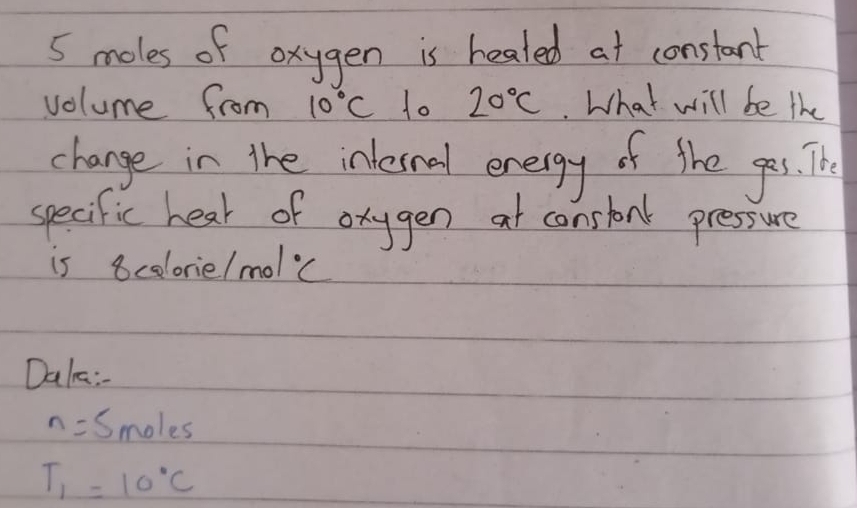 5 moles of oxygen is heated at constant
volume from 10°C to 20°C. What will be the
change in the internal energy of the gas. The
specific heat of oxygen at constant pressure
is 8calorie/mol°C
Data:-
n=5moles
T₁ = 10°C